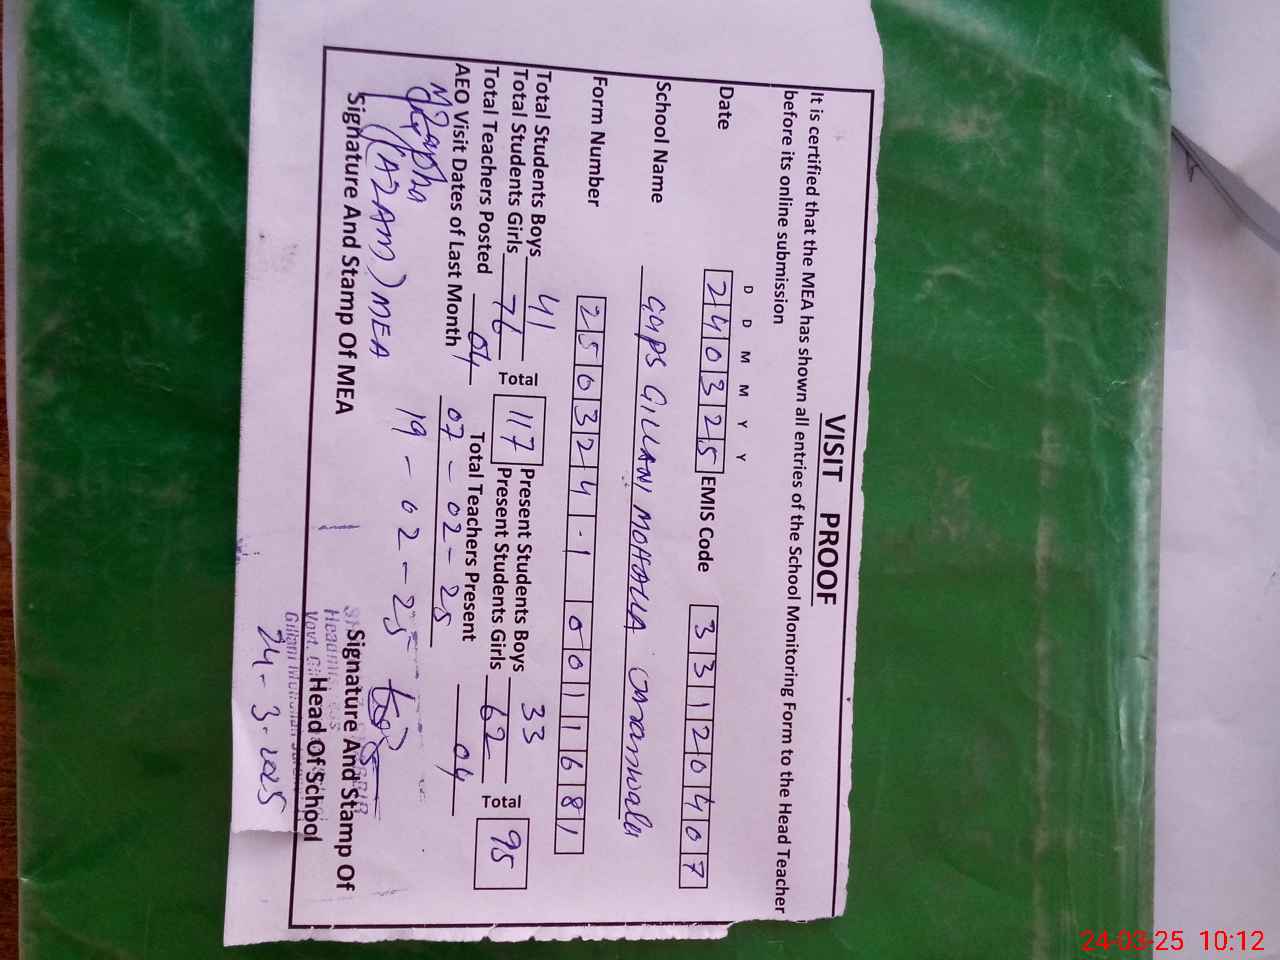 VISIT PROOF
It is certified that the MEA has shown all entries of the School Monitoring Form to the Head Teacher
before its online submission
D D M M Y Y
Date 240325 EMIS Code 33120407
School Name GGPS GILLANI MOHALLA
Form Number 250324-1 0011681
Total Students Boys 41 Present Students Boys 33
Total Students Girls 76 Total 117 Present Students Girls 62 Total 95
Total Teachers Posted 04 Total Teachers Present 04
AEO Visit Dates of Last Month 07-02-25
19-02-25
(AZAM) MEA
Signature And Stamp Of MEA
Signature And Stamp Of
Head Of School
24-3-2025
24-03-25 10:12